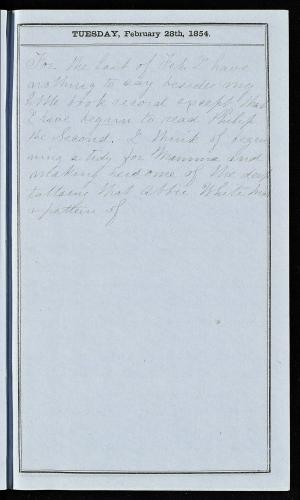 TUESDAY, February 28th, 1854.
For the last of Feb. I have
nothing to say besides my
little book record except that
I have begun to read Philip
the Second. I think of begin
ning a tidy for Mamma and
making her one of the deep
that Abbie White has
a pattern of